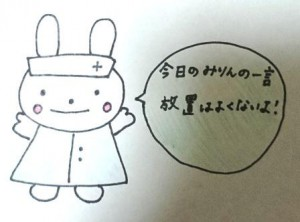 今日のみりんの一言
放置はよくないよ!